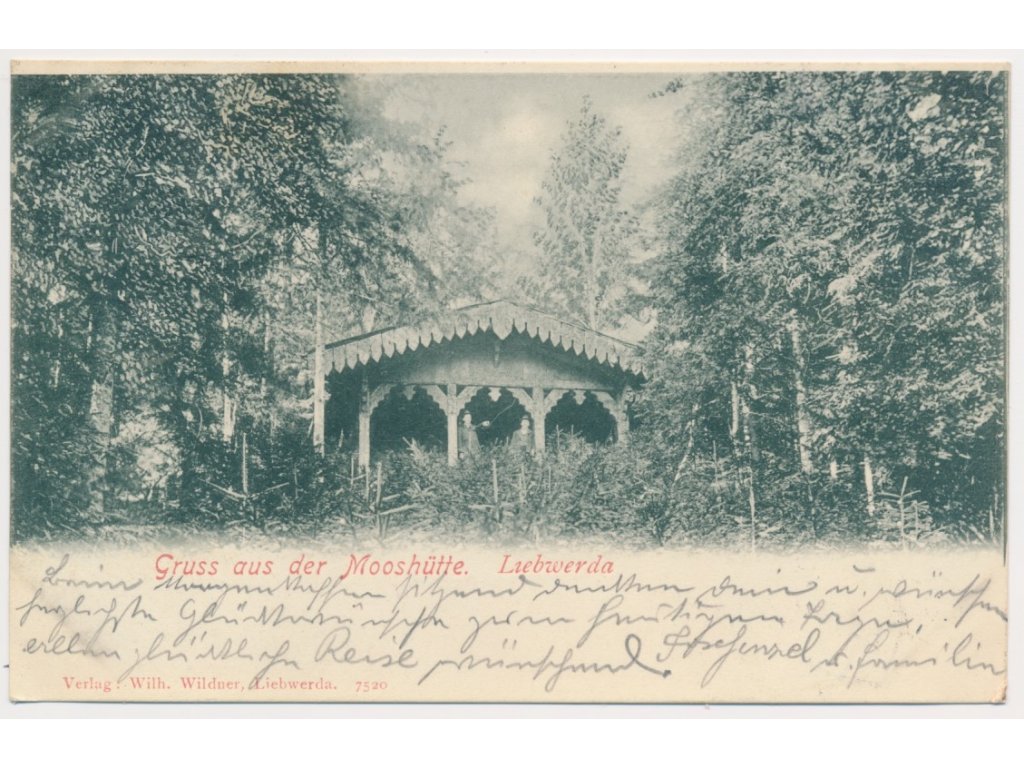 Gruss aus der Mooshütte. Liebwerda
Beim Morgenkaffee sitzend denken dein u. wünschen
herzlichste Glückwünsche zum heutigen Tage,
glückliche Reise wünschend. u. Familie
Verlag: Wilh. Wildner, Liebwerda. 7520